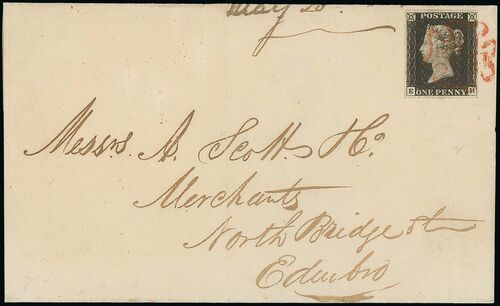 May 20.
POSTAGE
E H
ONE PENNY
Messrs. A. Scott & Co.
Merchants
North Bridge St
Edinbro